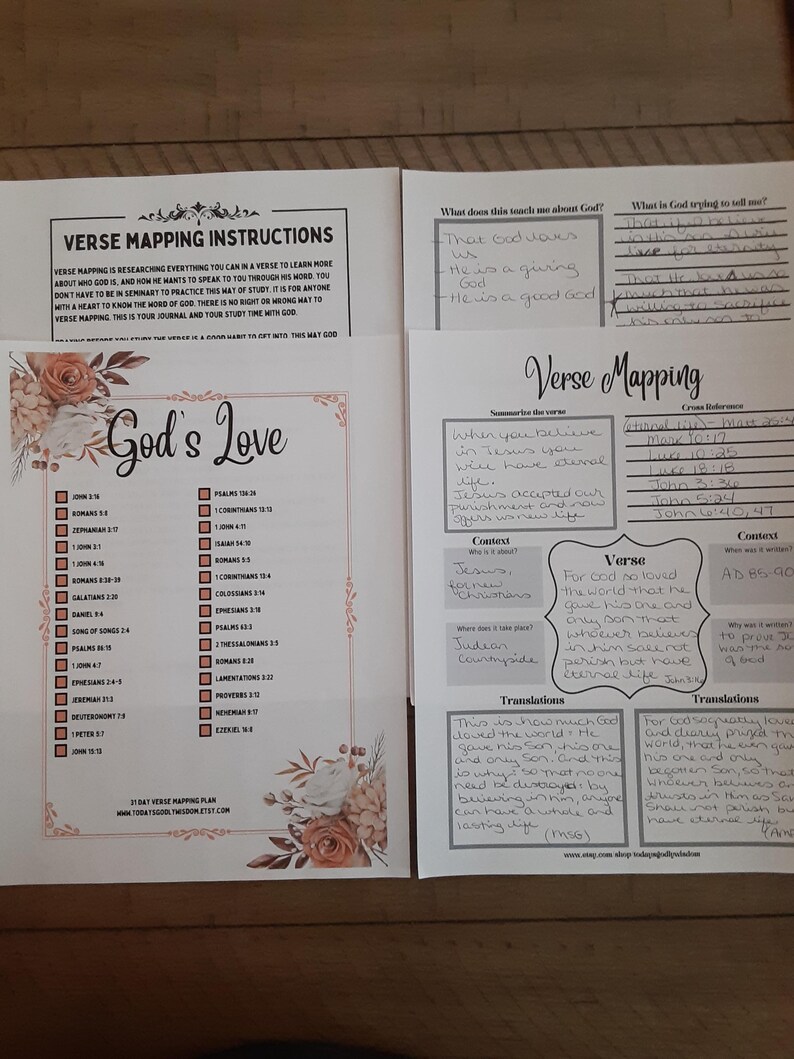 VERSE MAPPING INSTRUCTIONS
VERSE MAPPING IS RESEARCHING EVERYTHING YOU CAN IN A VERSE TO LEARN MORE
ABOUT WHO GOD IS, AND HOW HE WANTS TO SPEAK TO YOU THROUGH HIS WORD. YOU
DON'T HAVE TO BE IN SEMINARY TO PRACTICE THIS WAY OF STUDY. IT IS FOR ANYONE
WITH A HEART TO KNOW THE WORD OF GOD. THERE IS NO RIGHT OR WRONG WAY TO
VERSE MAPPING. THIS IS YOUR JOURNAL AND YOUR STUDY TIME WITH GOD.
PRAYING BEFORE YOU STUDY THE VERSE IS A GOOD HABIT TO GET INTO. THIS WAY GOD
What does this teach me about God?
- That God loves
us
- He is a giving
God
- He is a good God
What is God trying to tell me?
That if I believe
in his son I will
live for eternity
That He loves us so
much that he was
willing to sacrifice
his only son to
God's Love
JOHN 3:16
ROMANS 5:8
ZEPHANIAH 3:17
1 JOHN 3:1
1 JOHN 4:16
ROMANS 8:38-39
GALATIANS 2:20
DANIEL 9:4
SONG OF SONGS 2:4
PSALMS 86:15
1 JOHN 4:7
EPHESIANS 2:4-5
JEREMIAH 31:3
DEUTERONOMY 7:9
1 PETER 5:7
JOHN 15:13
PSALMS 136:26
1 CORINTHIANS 13:13
1 JOHN 4:11
ISAIAH 54:10
ROMANS 5:5
1 CORINTHIANS 13:4
COLOSSIANS 3:14
EPHESIANS 3:18
PSALMS 63:3
2 THESSALONIANS 3:5
ROMANS 8:28
LAMENTATIONS 3:22
PROVERBS 3:12
NEHEMIAH 9:17
EZEKIEL 16:8
31 DAY VERSE MAPPING PLAN
WWW.TODAYSGODLYWISDOM.ETSY.COM
Verse Mapping
Summarize the verse
When you believe
in Jesus you
will have eternal
life.
Jesus accepted our
punishment and now
offers us new life
Cross Reference
(eternal life) - Matt 25:4
Mark 10:17
Luke 10:25
Luke 18:18
John 3:36
John 5:24
John 6:40, 47
Context
Who is it about?
Jesus,
for new
Christians
Where does it take place?
Judean
Countryside
Verse
For God so loved
the world that he
gave his one and
only Son that
whoever believes
in him shall not
perish but have
eternal life John 3:16
Context
When was it written?
AD 85-90
Why was it written?
to prove
was the so
of God
Translations
This is how much God
loved the world: He
gave his Son, his one
and only Son. And this
is why: so that no one
need be destroyed: by
believing in him, anyone
can have a whole and
lasting life
(MSG)
Translations
For God so greatly loved
and dearly prized th
world, that he even gav
his one and only
begotten Son, so that
whoever believes an
trusts in Him as Sav
Shall not perish bu
have eternal life
(AM
www.etsy.com/shop/todaysgodlywisdom